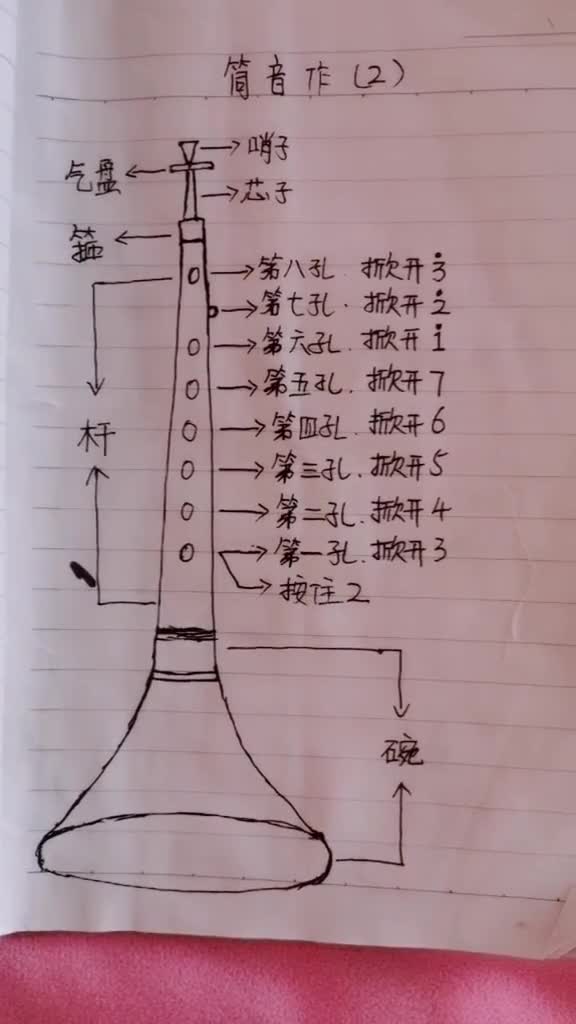 筒音作(2)
哨子
气盘
芯子
箍
第八孔.掀开3̇
第七孔.掀开2̇
第六孔.掀开1̇
第五孔.掀开7
杆
第四孔.掀开6
第三孔.掀开5
第二孔.掀开4
第一孔.掀开3
按住2
碗